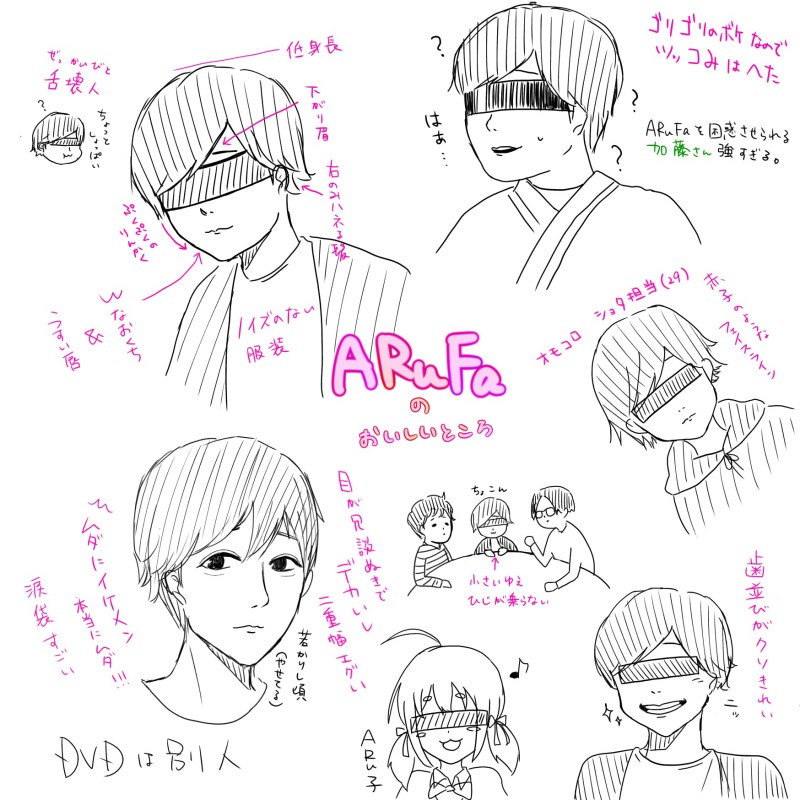 ぜっかいびと
舌壊人
?
ちょっと
しょっぱい
低身長
下がり眉
右のみハネる髪
ぷくぷくの
りんかく
Wなおくち
&
うすい唇
ノイズのない
服装
?
?
?
はぁ…
ゴリゴリのボケなので
ツッコみはへた
ARuFaを困惑させられる
加藤さん強すぎる。
ARuFa
の
おいしいところ
オモコロ ショタ担当(29)
赤子のような
フェイスライン
ムダにイケメン
本当にムダ!!!
涙袋すごい
目が冗談ぬきで
デーカいし
二重幅エグい
若かりし頃
(やせてる)
DVDは別人
ちょこん
小さいゆえ
ひじが乗らない
ARu子
♪
歯並びがクソきれい
ニッ